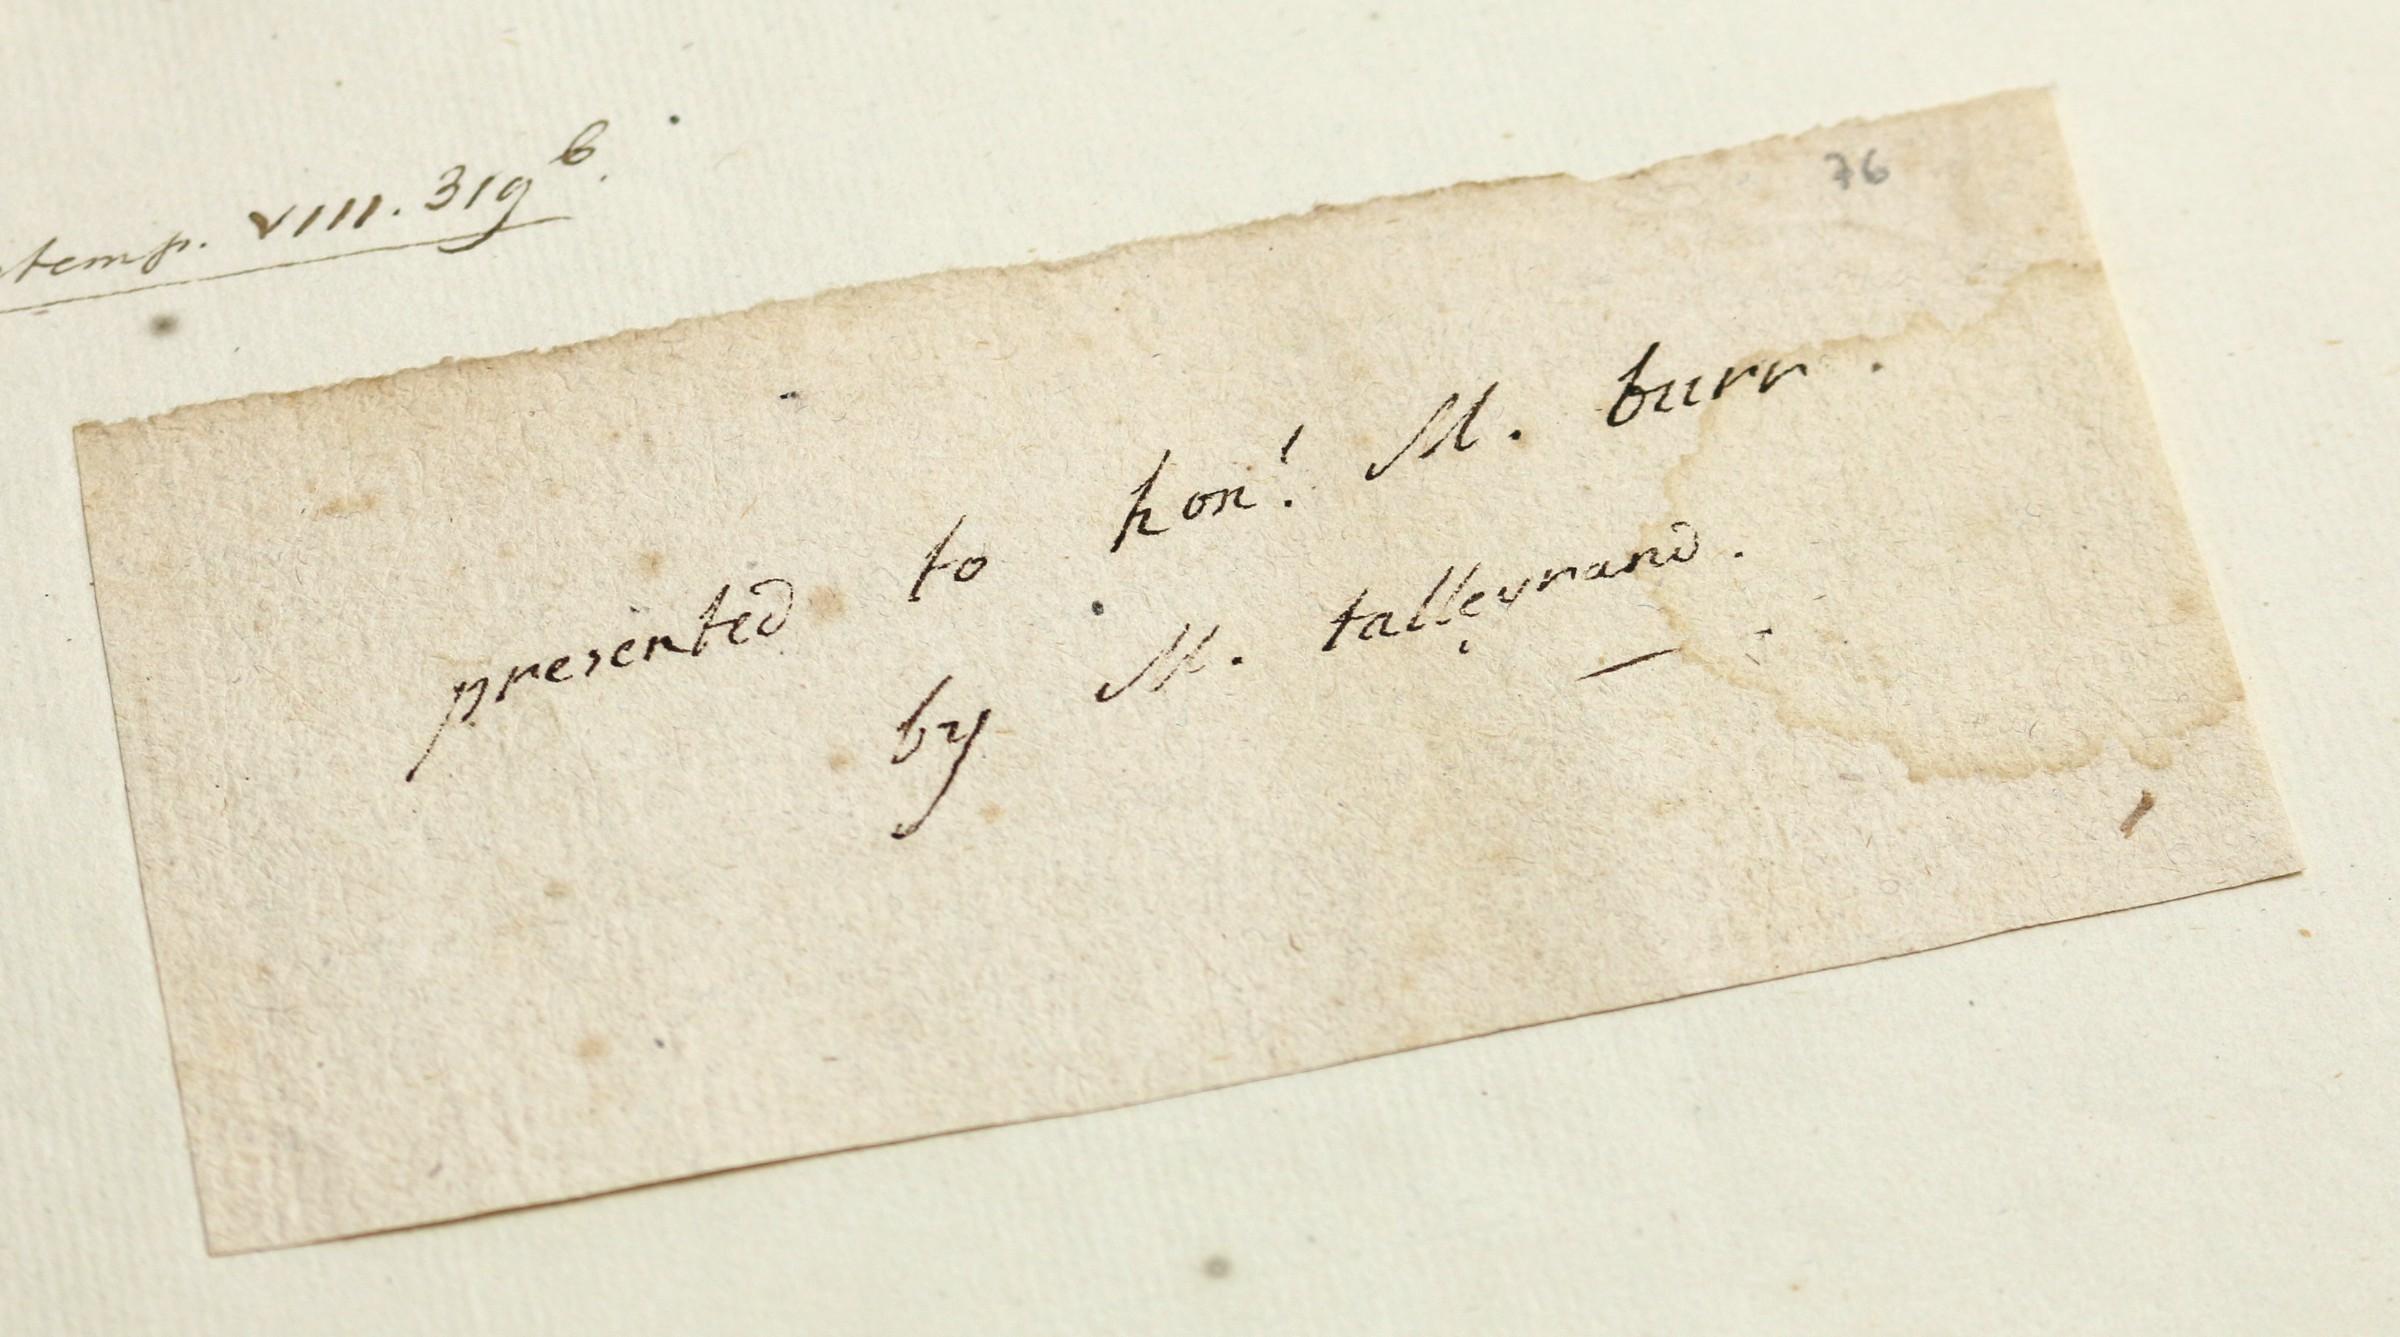 temp. VIII. 319 b.
76
presented to hon! M. burr.
by M. talleyrand.